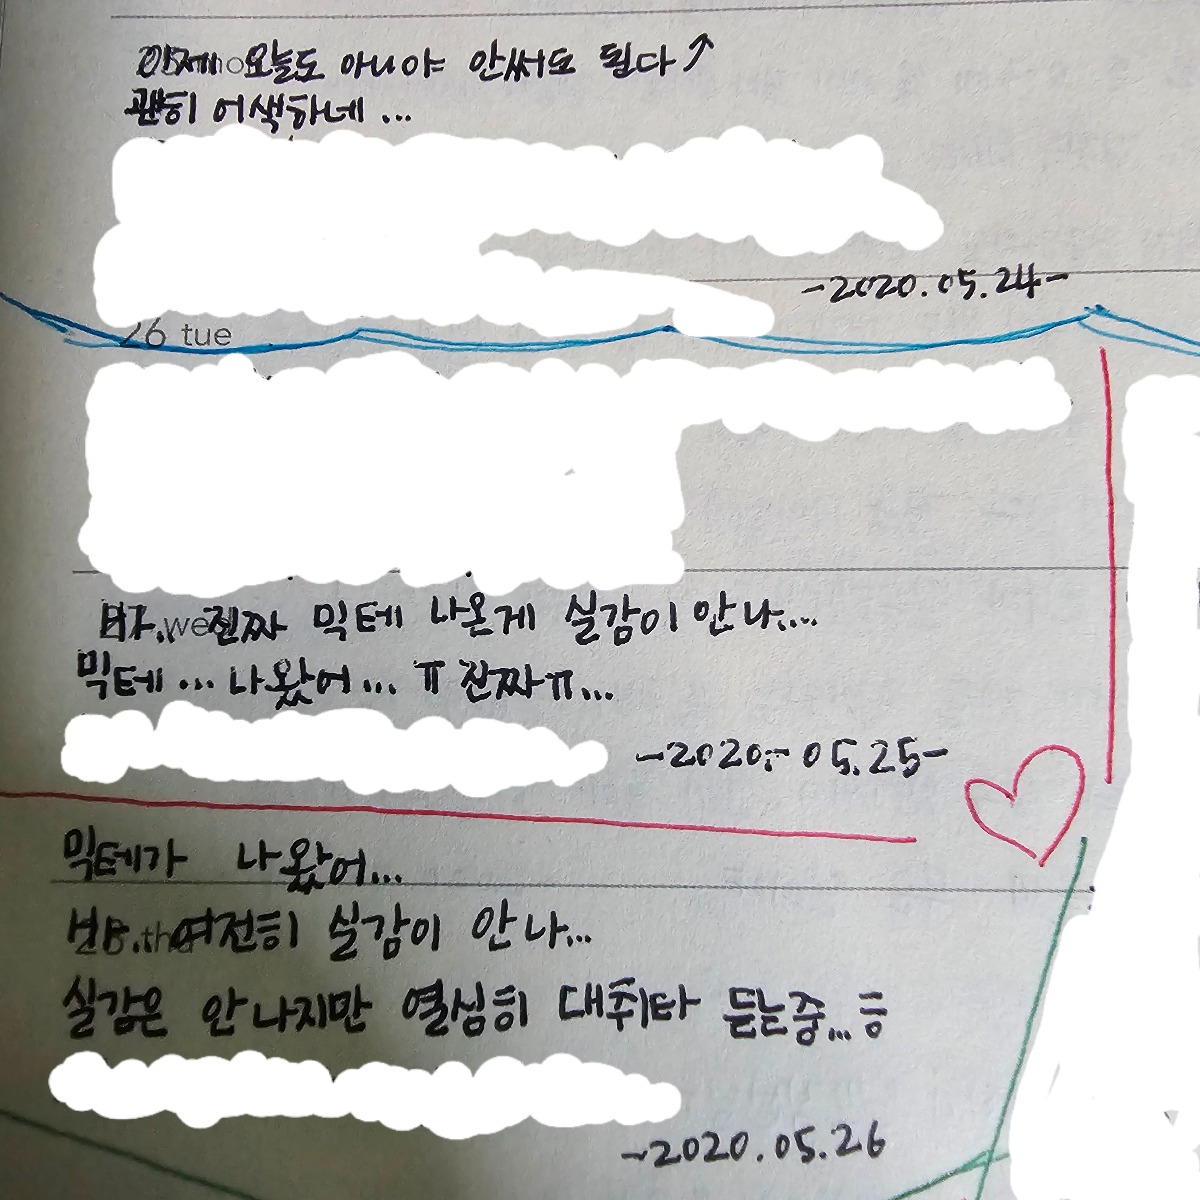 이제 오늘도 아니야 안써도 된다↑
괜히 어색하네...
-2020.05.24-
26 tue
진짜 믹테 나온게 실감이 안나...
믹테... 나왔어... ㅠ 진짜ㅠ...
-2020.05.25-
믹테가 나왔어...
여전히 실감이 안나...
실감은 안나지만 열심히 대취타 듣는중...ㅎ
-2020.05.26